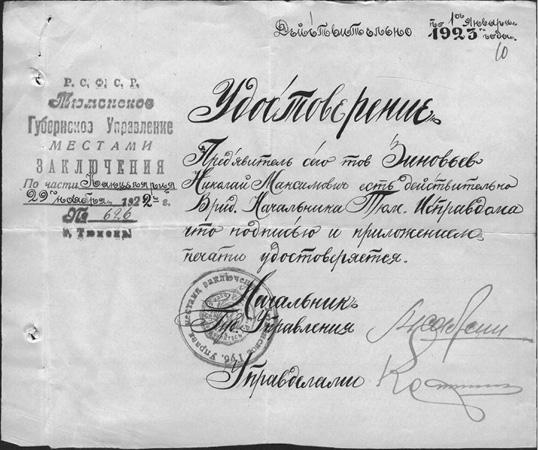 Действительно по 1ое Января
1923 го года.
10
Р. С. Ф. С. Р.
Тюменское
Губернское Управление
МЕСТАМИ
ЗАКЛЮЧЕНИЯ
По части Канцелярия
29 го ноября 1922 г.
№ 626
г. Тюмень
Удостоверение
Пред'явитель сего тов Зиновьев
Николай Максимович есть действительно
Врид. Начальника Тюм. Исправдома
что подписью и приложением
печати удостоверяется.
Начальник
Гу. Управления
Управделами